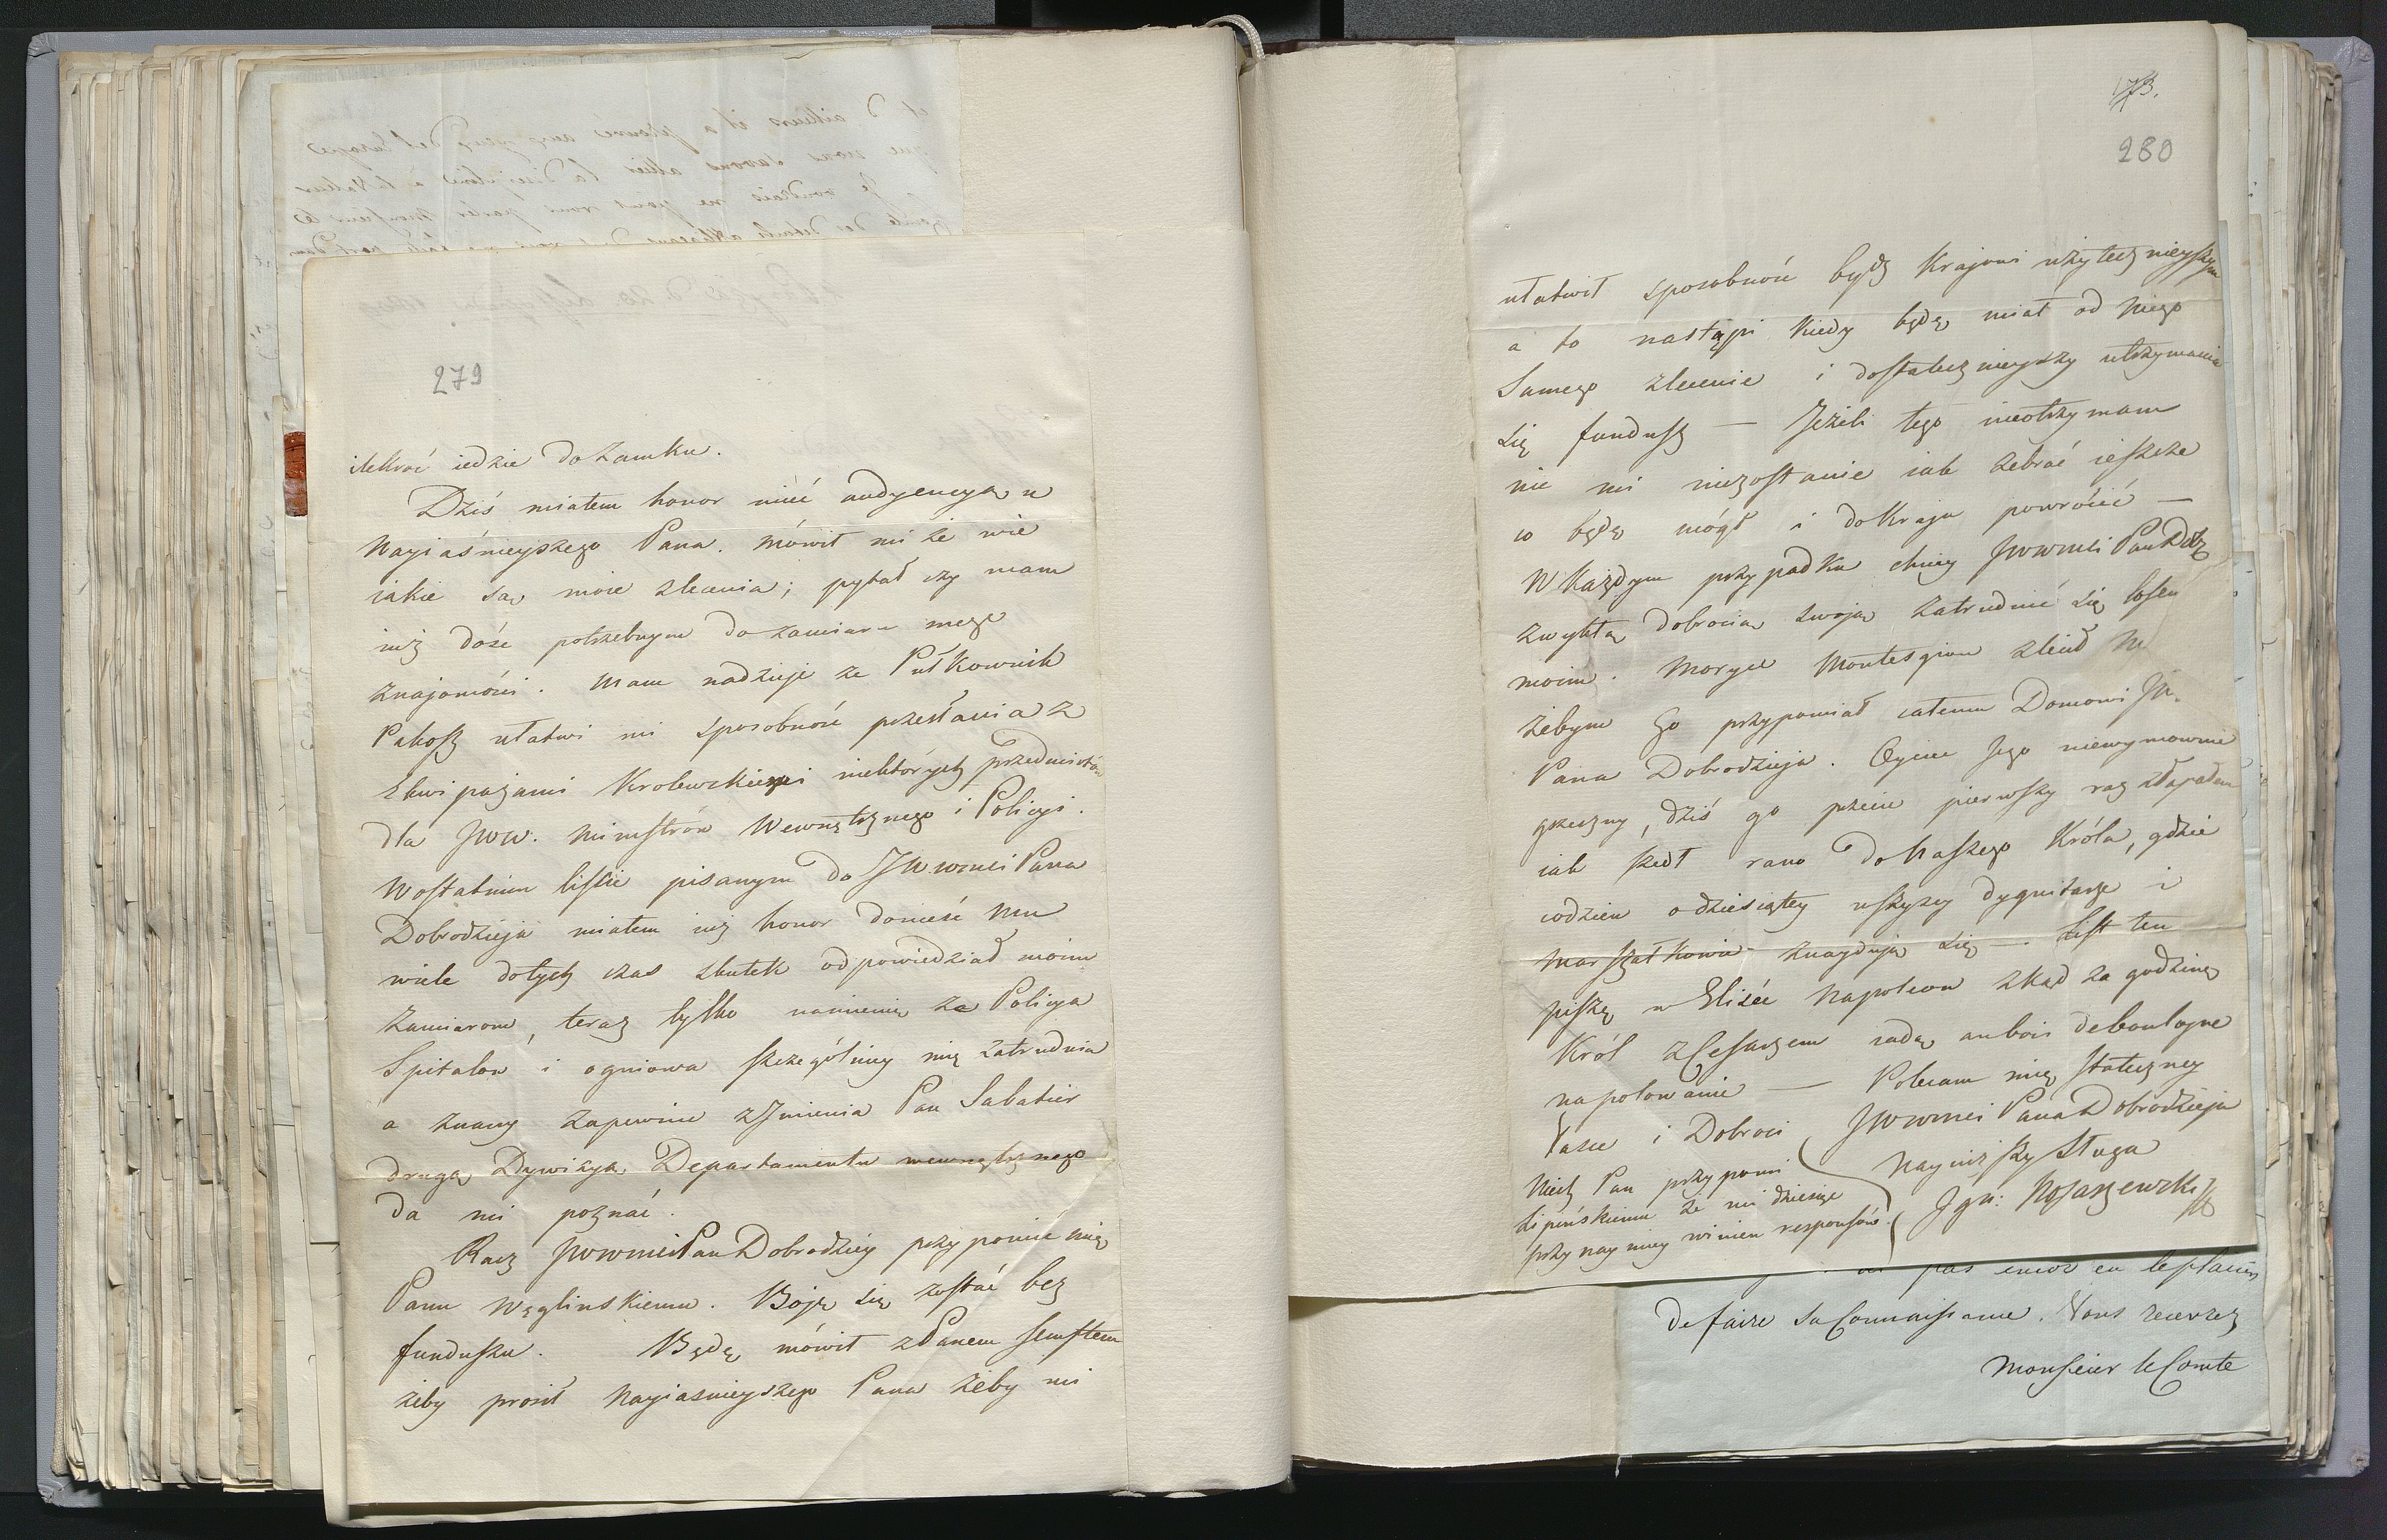 279
ilekroć iedzie do Zamku.
Dziś miałem honor mieć audyencyą u
Nayiaśnieyszego Pana. mówił mi że wie
iakie są moie zlecenia; pytał czy mam
iuż dość potrzebnym do zamiaru mego
znajomości. Mam nadzieję że Pułkownik
Pakosz ułatwi mi sposobność przesłania z
Ekwipażami Krolewskiemi niektórych przedmiotów
dla JWW. Ministrów Wewnętrznego i Policyi.
W ostatnim liście pisanym do JWWmci Pana
Dobrodzieja miałem iuż honor donieść Mu
wiele dotych czas skutek odpowiedział moim
zamiarom, teraz tylko namienię że Policya
Spitalow i ogniowa szczególniey mię zatrudnia
a znany zapewne z Imienia Pan Sabatier
drugą Dywizyą Departamentu wewnętrznego
da mi poznać.
Racz JWWmci Pan Dobrodziey przypomnieć mię
Panu Węglinskiemu. Boję się zostać bez
funduszu. Będę mówił z Panem Senftem
żeby prosił Nayiasnieyszego Pana żeby mi
173.
280
ułatwił sposobność bydź Krajowi użytecznieyszym
a to nastąpi kiedy będę miał od Niego
Samego zlecenie i dostatecznieyszy utrzymania
się fundusz — Jeżeli tego nieotrzymam
nie mi niezostanie iak zebrać ieszcze
co będę mógł i do Kraju powrócić —
W Każdym przypadku chciey JWWmci Pan Dobr
zwykłą dobrocią swoją zatrudnić się losem
moim. Moryc Montesqiou zlecił
żebym Go przypomniał całemu Domowi JW.
Pana Dobrodzieja. Oyciec Jego niewymownie
grzeczny, dziś go przecie pierwszy raz złapałem
iak szedł rano do Naszego Króla, gdzie
codzien o dziesiątey wszyscy dygnitarze i
Marszałkowie znayduią się —. List ten
piszę w Elisée Napoleon zkąd za godzinę
Król z Cesarzem iadą au bois de boulogne
na polowanie — Polecam mię stateczney
łasce i Dobroci JWWmci Pana Dobrodzieja
Nayniższy Sługa
Ign: Kossarzewski
Niech Pan przypomni
Lipińskiemu że mi dziesięć
przynaymniey winien responsów.
pas encor eu le plaisir
de faire sa Connaissance. Vous recevrez
Monsieur le Comte